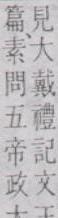 見大戴禮記文王
篇素問五帝政大